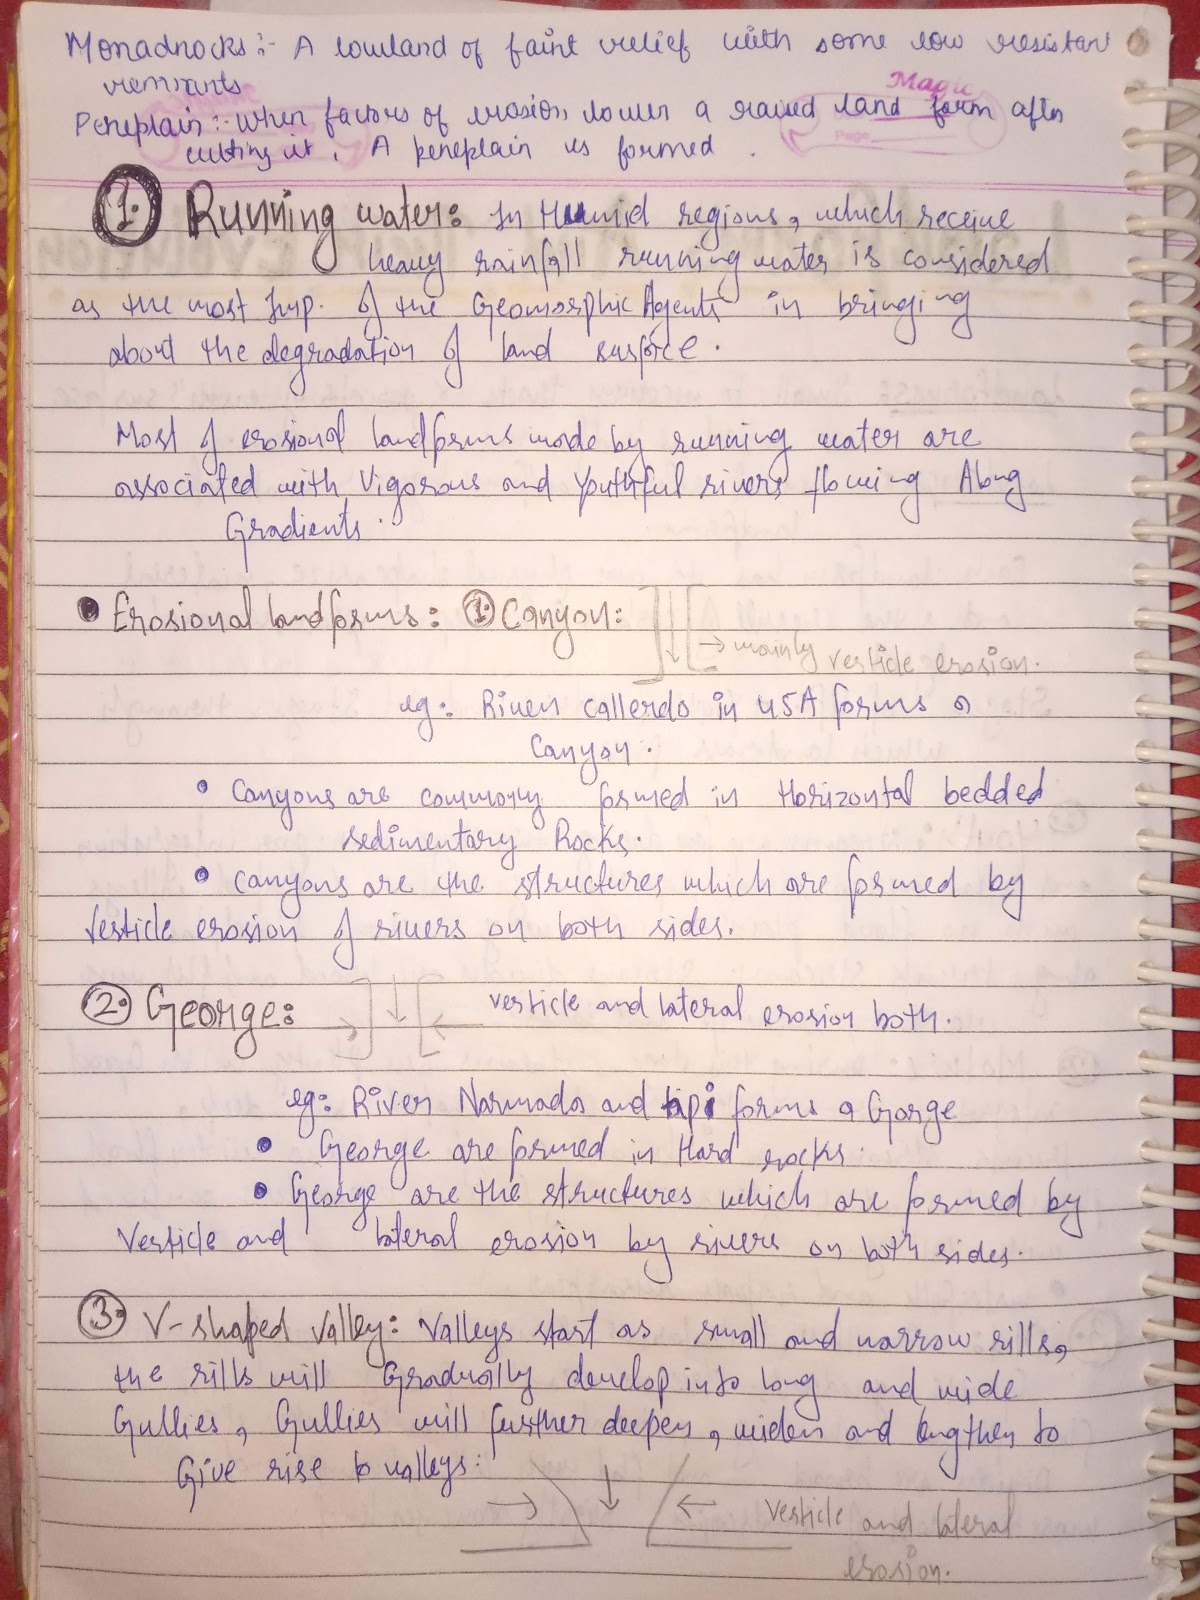 Monadnocks:- A lowland of faint relief with some low resistant
remnants
Magic
Peneplain:- when factors of erosion lower a raised land form after
cutting it. A peneplain is formed.
Page
1. Running water: In Humid regions, which receive
heavy rainfall running water is considered
as the most Imp. of the Geomorphic Agents in bringing
about the degradation of land surface.
Most of erosional landforms made by running water are
associated with Vigorous and Youthful rivers flowing Along
Gradients.
• Erosional landforms: 1. Canyon:
→ mainly verticle erosion.
eg: River callerdo in USA forms a
Canyon.
• Canyons are commonly formed in Horizontal bedded
sedimentary Rocks.
• Canyons are the structures which are formed by
Verticle erosion of rivers on both sides.
2. George: verticle and lateral erosion both.
eg: River Narmada and tapi forms a Gorge
• George are formed in Hard rocks.
• George are the structures which are formed by
Verticle and lateral erosion by rivers on both sides.
3. V-shaped Valley: Valleys start as small and narrow rills,
the rills will Gradually develop into long and wide
Gullies, Gullies will further deepen, widen and lengthen to
Give rise to valleys:
Verticle and lateral
erosion.